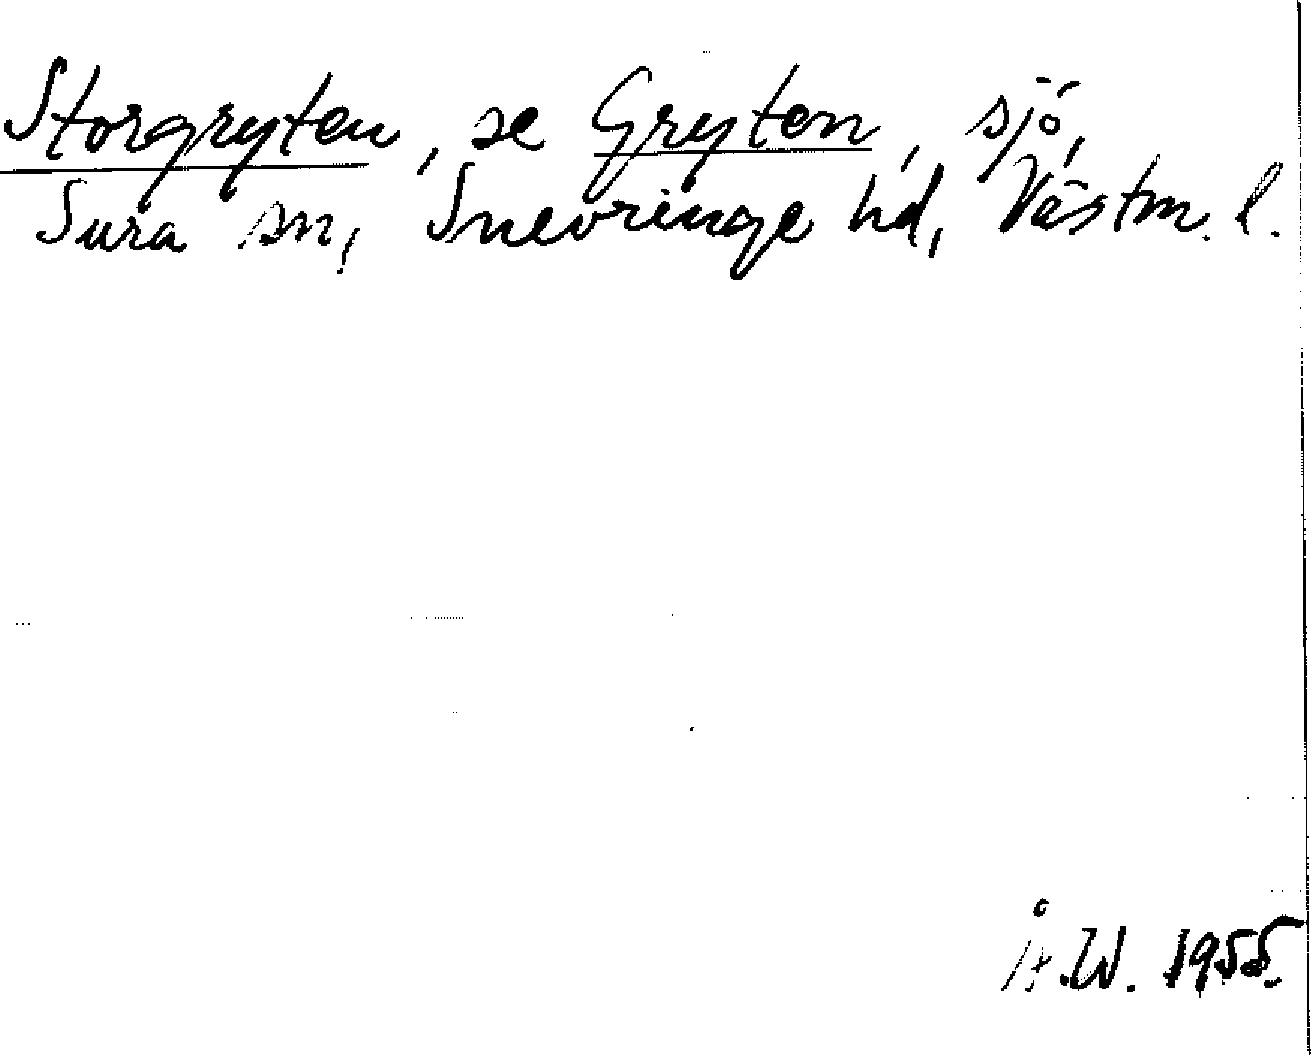 Storgryten, se Gryten, sjö,
Sura sn, Snevringe hd, Västm. l.
Å.W. 1955.